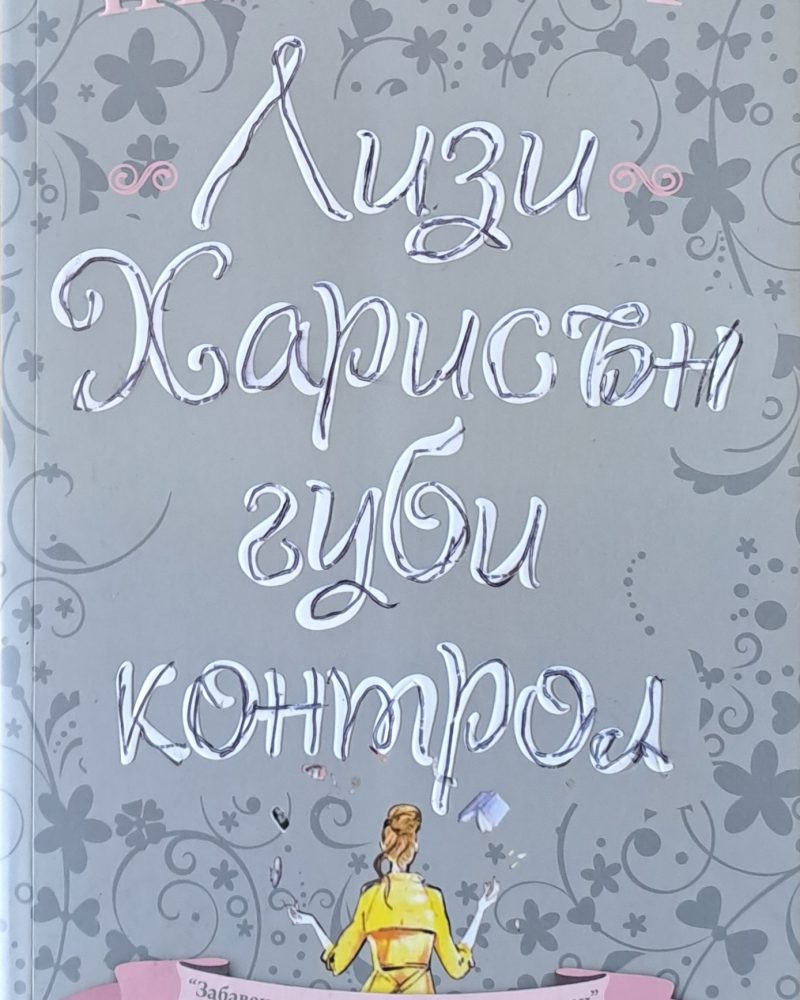 Лизи
Харисън
губи
контрол